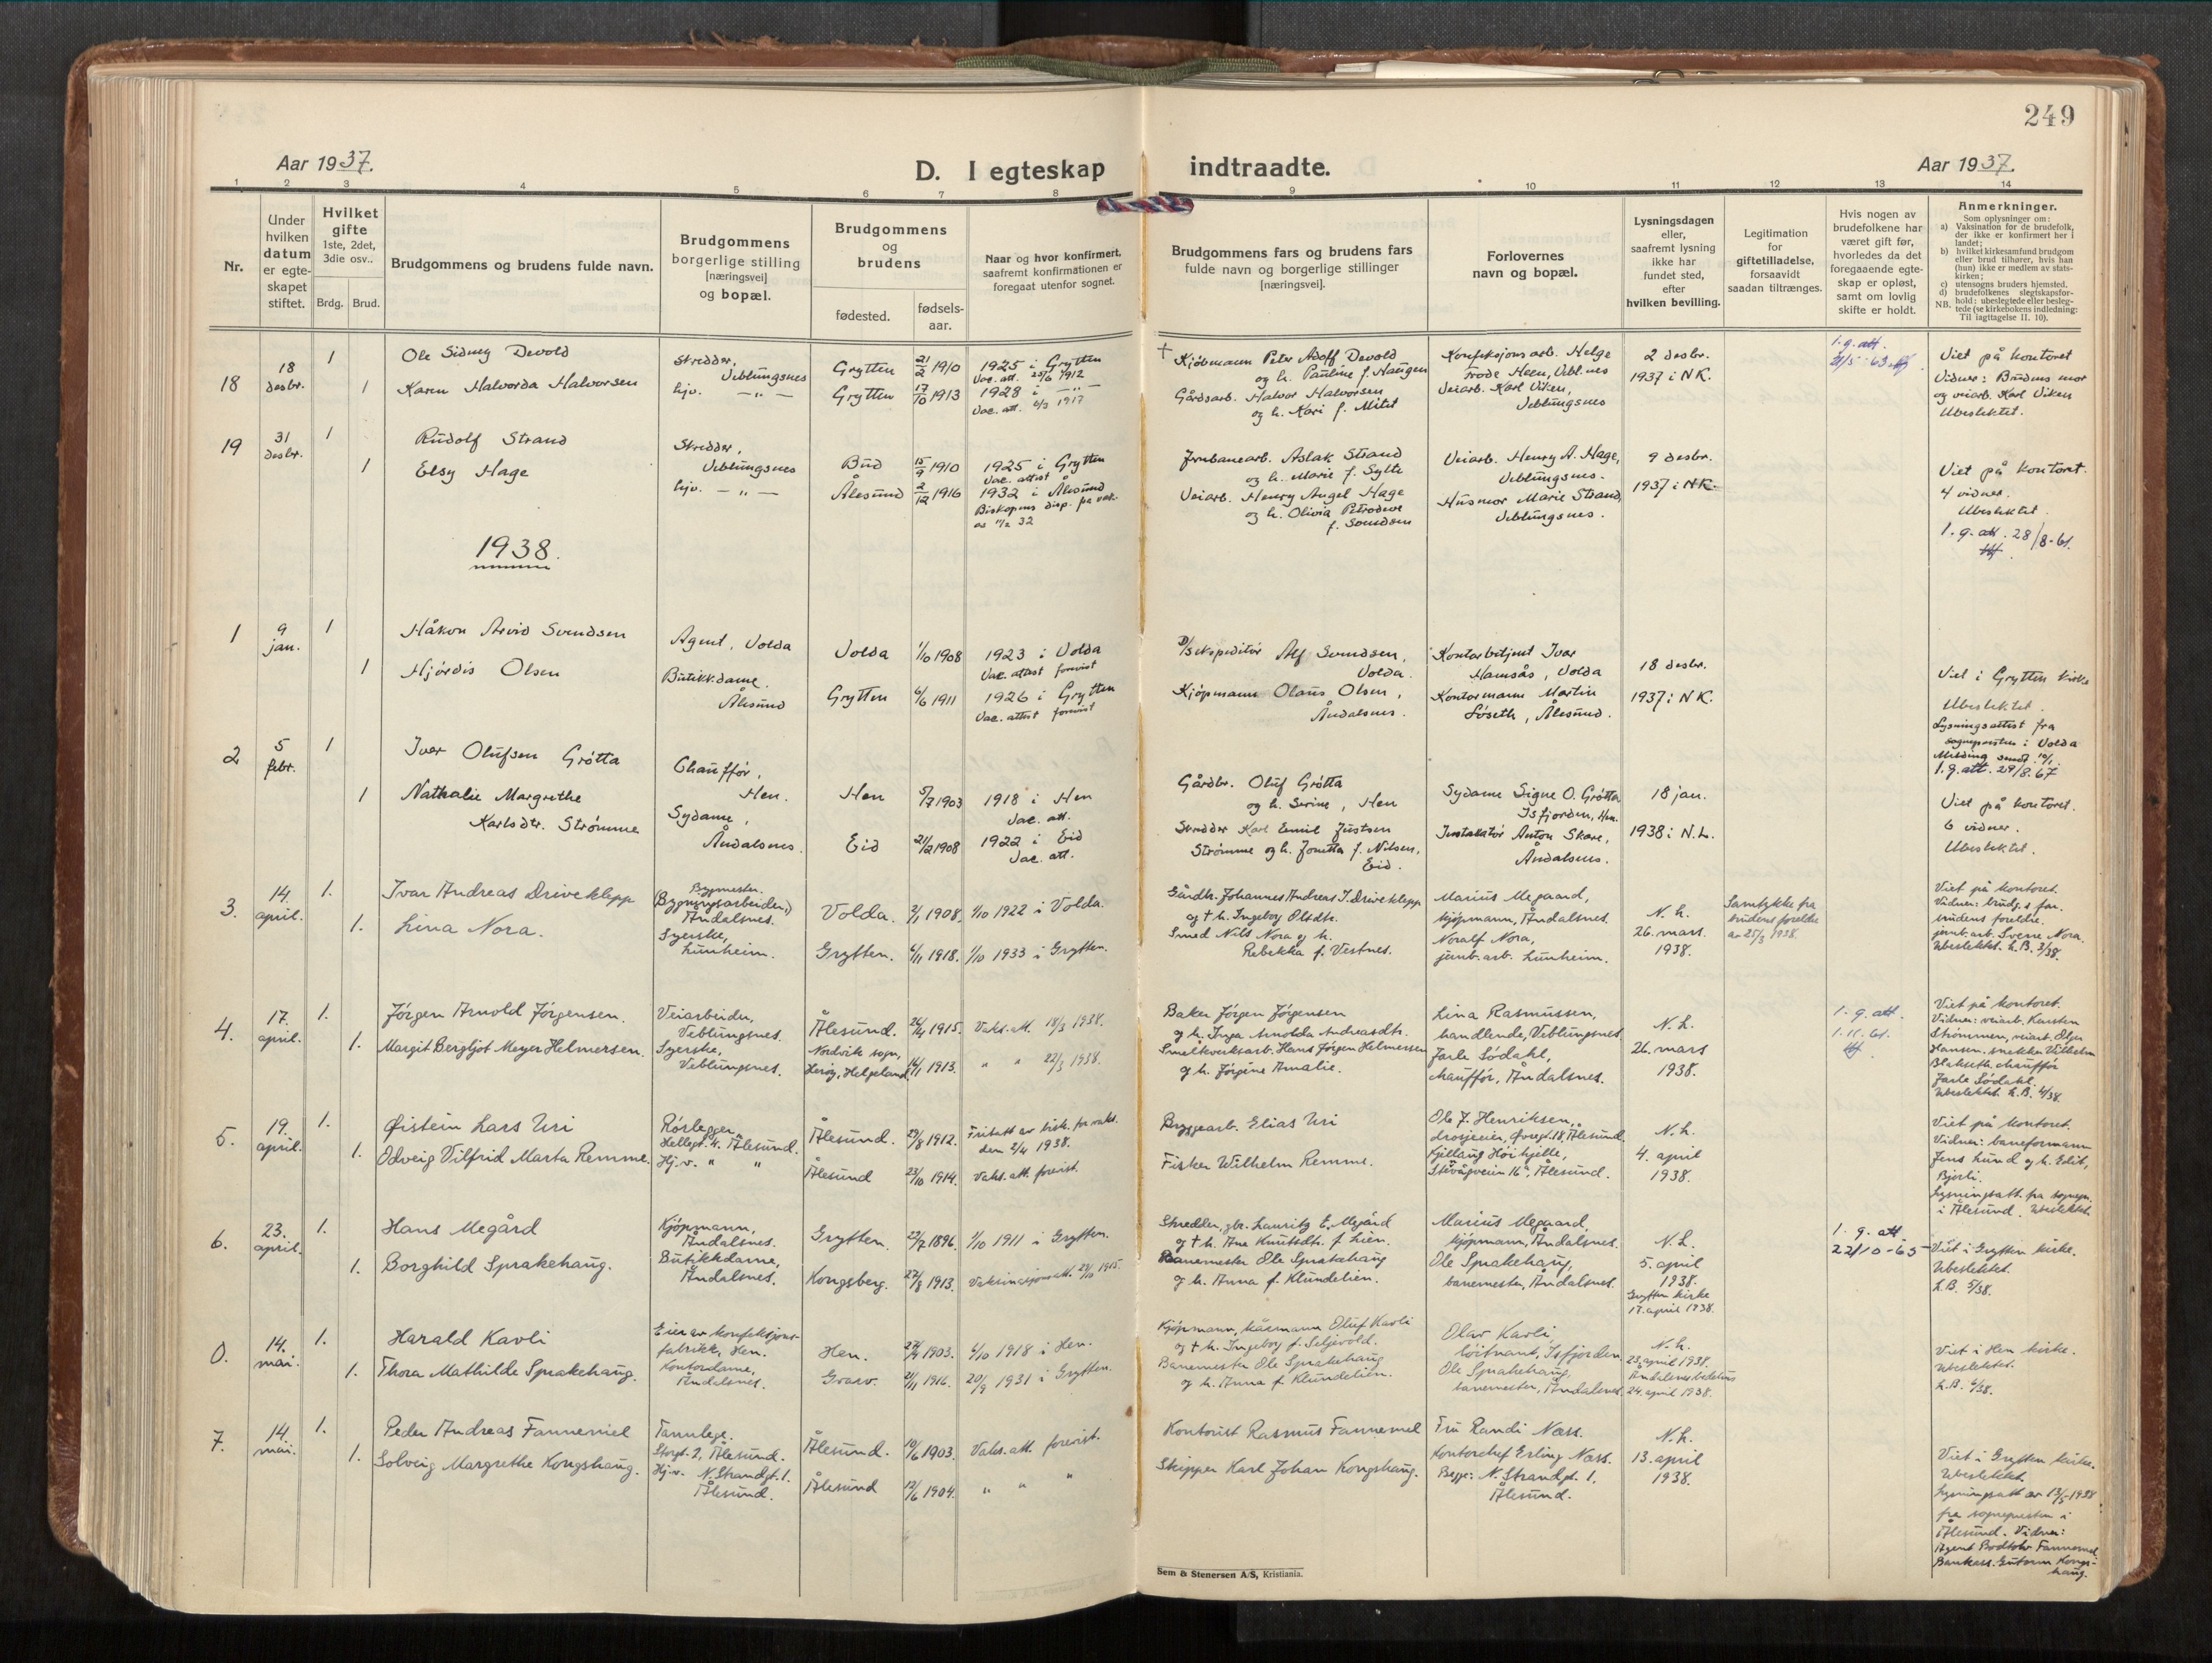 249
Aar 1937.
D. I egteskap indtraadte.
Aar 1937.
1 2 3 4 5 6 7 8 9 10 11 12 13 14
Nr.
Under hvilken datum er egteskapet stiftet.
Hvilket gifte 1ste, 2det, 3die osv..
Brdg. Brud.
Brudgommens og brudens fulde navn.
Brudgommens borgerlige stilling [næringsvei] og bopæl.
Brudgommens og brudens
fødested.
fødselsaar.
Naar og hvor konfirmert, saafremt konfirmationen er foregaat utenfor sognet.
Brudgommens fars og brudens fars fulde navn og borgerlige stillinger [næringsvei].
Forlovernes navn og bopæl.
Lysningsdagen eller, saafremt lysning ikke har fundet sted, efter hvilken bevilling.
Legitimation for giftetilladelse, forsaavidt saadan tiltrænges.
Hvis nogen av brudefolkene har været gift før, hvorledes da det foregaaende egteskap er opløst, samt om lovlig skifte er holdt.
Anmerkninger.
Som oplysninger om:
a) Vaksination for de brudefolk, der ikke er konfirmert her i landet;
b) hvilket kirkesamfund brudgom eller brud tilhører, hvis han (hun) ikke er medlem av statskirken;
c) utensogns bruders hjemsted.
d) brudefolkenes slegtskapsforhold: ubeslegtede eller beslegtede (se kirkebokens indledning:
NB. Til iagttagelse II. 10).
18
18 desbr.
1
Ole Sidney Devold
Skredder, Veblungsnes
Grytten
21/2 1910
1925 i Grytten
Vac. att. 25/6 1912
1
Karen Halvorda Halvorsen
hjv. — " —
Grytten
17/10 1913
1928 i — " —
Vac. att. 6/3 1917
† Kjøbmann Peter Adolf Devold
og h. Pauline f. Haugen
Gårdsarb. Halvor Halvorsen
og h. Kari f. Mittet
Konfeksjonsarb. Helge
Frode Heen, Vebl.nes
Veiarb. Karl Viken,
Veblungsnes
2 desbr.
1937 i NK.
1.g. att.
21/5 - 63
Viet på kontoret
Vidner: Brudens mor
og veiarb. Karl Viken
Ubeslektet.
19
31 desbr.
1
Rudolf Strand
Skredder,
Veblungsnes
Bud
15/9 1910
1925 i Grytten
Vac. attist
1
Elsy Hage
hjv. — " —
Ålesund
2/12 1916
1932 i Ålesund
Biskopens disp. fra vak.
Jernbanearb. Aslak Strand
og h. Marie f. Sylte
Veiarb. Henry Angel Hage
og h. Olivia Petrodeve
f. Svendsen
Veiarb. Henry A. Hage,
Veblungsnes.
Husmor Marie Strand,
Veblungsnes.
9 desbr.
1937 i NK.
Viet på kontoret.
4 vidner.
Ubeslektet.
1. g. att. 28/8-61.
1938.
1
9 jan.
1
Håkon Arvid Svendsen
Agent, Volda
Volda
1/10 1908
1923 i Volda
Vac. attist forevist
1
Hjørdis Olsen
Butikkdame.
Ålesund
Grytten
6/6 1911
1926 i Grytten
Vac. attist forevist
D/S ekspeditør Alf Svendsen,
Volda.
Kjøpmann Olaus Olsen,
Åndalsnes.
Kontorbetjent Ivar
Hamsås, Volda
Kontormann Martin
Løseth, Ålesund.
18 desbr.
1937 i NK.
Viet i Grytten kirke
Ubeslektet.
Lysningsattest fra
sogneprsten i Volda
Melding sendt
1.g. att. 29/8.67
2
5 febr.
1
Iver Olufsen Grøtta
Chauffør,
Hen.
Hen
5/7 1903
1918 i Hen
Vac. att.
1
Nathalie Margrethe
Karlsdtr. Strømme
Sydame,
Åndalsnes.
Eid
21/2 1908
1922 i Eid
Vac. att.
Gårdbr. Oluf Grøtta
og h. Serine, Hen
Skredder Karl Emil Justsen
Strømme og h. Jonetta f. Nilsen,
Eid.
Sydame Signe O. Grøtta
Isfjorden, Hen.
Installatør Anton Skare,
Åndalsnes.
18 jan.
1938 i N.L.
Viet på kontoret.
6 vidner.
Ubeslektet.
3.
14. april.
1.
Ivar Andreas Driveklepp
Bygmester.
(Bygningsarbeider,)
Åndalsnes.
Volda.
2/1 1908.
1/10 1922 i Volda.
1.
Lina Nora.
Syerske,
Lunheim.
Grytten.
6/11 1918.
1/10 1933 i Grytten.
Gårdbr. Johannes Andreas I. Driveklepp
og † h. Ingeborg Olsdtr.
Smed Nils Nora og h.
Rebekka f. Vestnes.
Marius Megaard,
kjøpmann, Åndalsnes.
Noralf Nora,
jernb.arb. Lunheim.
N. L.
26. mars.
1938.
Samtykke fra
brudens foreldre
av 25/3 1938.
Viet på kontoret.
Vidner: brudg.s far.
brudens foreldre.
jernb.arb. Sverre Nora.
Ubeslektet. L.B. 3/38.
4.
17. april.
1.
Jørgen Arnold Jørgensen.
Veiarbeider,
Veblungsnes.
Ålesund.
26/4 1915.
Vaks.att. 18/3 1938.
1.
Margit Bergljot Meyer Helmersen.
Syerske,
Veblungsnes.
Nordvik sogn,
Herøy, Helgeland.
16/11 1913.
" " 22/3 1938.
Baker Jørgen Jørgensen
og h. Inga Arnolda Andreasdtr.
Smelteverksarb. Hans Jørgen Helmersen
og h. Jørgine Amalie.
Lina Rasmussen,
handlende, Veblungsnes
Jarle Sødahl,
chauffør, Åndalsnes.
N. L.
26. mars
1938.
1. g. att.
1.11.61.
Viet på kontoret.
Vidner: veiarb. Karsten
Strømmen, veiarb.
Hansen, snekker Vilhelm
chauffør
Jarle Sødahl.
Ubeslektet. L.B. 4/38.
5.
19. april.
1.
Øistein Lars Uri
Rørlegger,
Hellegt. 4. Ålesund.
Ålesund.
29/8 1912.
Fritatt av bisk. for vaks.
den 2/4 1938.
1.
Odveig Vilfrid Marta Remme.
Hj.v. " "
Ålesund
23/10 1914.
Vaks.att. forevist.
Bryggearb. Elias Uri
Fisker Wilhelm Remme.
Ole J. Henriksen,
drosjeeier, Øvregt. 18, Ålesund.
Kjellaug Høikjelle,
Stevågveien 16a, Ålesund.
N. L.
4. april
1938.
Viet på kontoret.
Vidner: baneformann
Jens Lund og h. Edit,
Bjorli.
Lysningsatt. fra sognepr.
i Ålesund. Ubeslektet.
6.
23. april.
1.
Hans Megård
Kjøpmann,
Åndalsnes.
Grytten.
22/7 1896.
1/10 1911 i Grytten.
1.
Borghild Sprakehaug.
Butikkdame,
Åndalsnes.
Kongsberg.
27/8 1913.
Vaksinasjonsatt. 29/10 1915.
Skredder, gbr. Lauritz E. Megård
og † h. Ane Knutsdtr. f. Lien.
Banemester Ole Sprakehaug
og h. Anna f. Klundelien.
Marius Megaard,
kjøpmann, Åndalsnes.
Ole Sprakehaug,
banemester, Åndalsnes.
N. L.
5. april
1938.
Grytten kirke
17. april 1938.
1. g. att
22/10-65
Viet i Grytten kirke.
Ubeslektet.
L.B. 5/38.
0.
14. mai.
1.
Harald Kavli
Eier av konfeksjonsfabrikk, Hen.
Hen.
27/4 1903.
6/10 1918 i Hen.
1.
Thora Mathilde Sprakehaug.
Kontordame,
Åndalsnes.
21/11 1916.
20/9 1931 i Grytten.
Kjøpmann, Oluf Kavli
og † h. Ingeborg f. Seljevold.
Banemester Ole Sprakehaug
og h. Anna f. Klundelien.
Olav Kavli,
løitnant, Isfjorden
Ole Sprakehaug,
banemester, Åndalsnes.
N. L.
23. april 1938.
Åndalsnes bedehus
24. april 1938.
Viet i Hen kirke.
Ubeslektet.
L.B. 6/38.
7.
14. mai.
1.
Peder Andreas Fannemel
Tannlege.
Storgt. 2, Ålesund.
Ålesund.
10/6 1903.
Vaks.att. forevist.
1.
Solveig Margrethe Kongshaug.
Hj.v. N. Strandgt. 1.
Ålesund.
Ålesund
12/6 1904.
" " "
Kontorist Rasmus Fannemel
Skipper Karl Johan Kongshaug.
Fru Randi Næss.
Kontorchef Erling Næss.
Begge: N. Strandgt. 1.
Ålesund.
N. L.
13. april
1938.
Viet i Grytten kirke.
Ubeslektet.
Lysningsatt av 13/5-1938
fra sognepresten i
Ålesund. Vidner:
Agent Bodtolv Fannemel
Bankass. Guttorm Kongshaug.
Sem & Stenersen A/S, Kristiania.